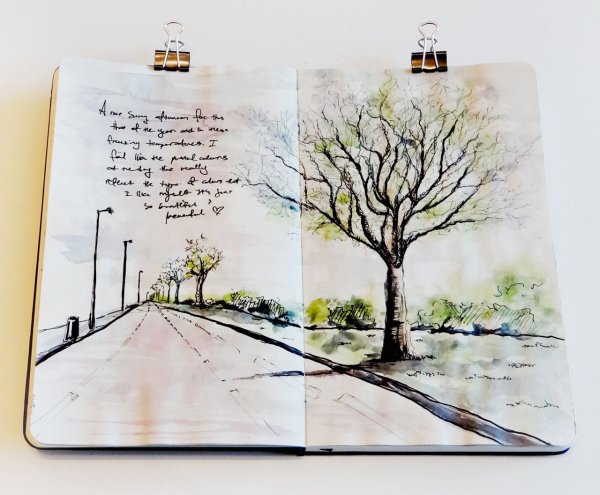 A rare sunny afternoon for this
time of the year and in these
freezing temperatures. I
feel like the pastel colours
really
reflect the type of colors
I like myself. It's just
so beautiful,
peaceful